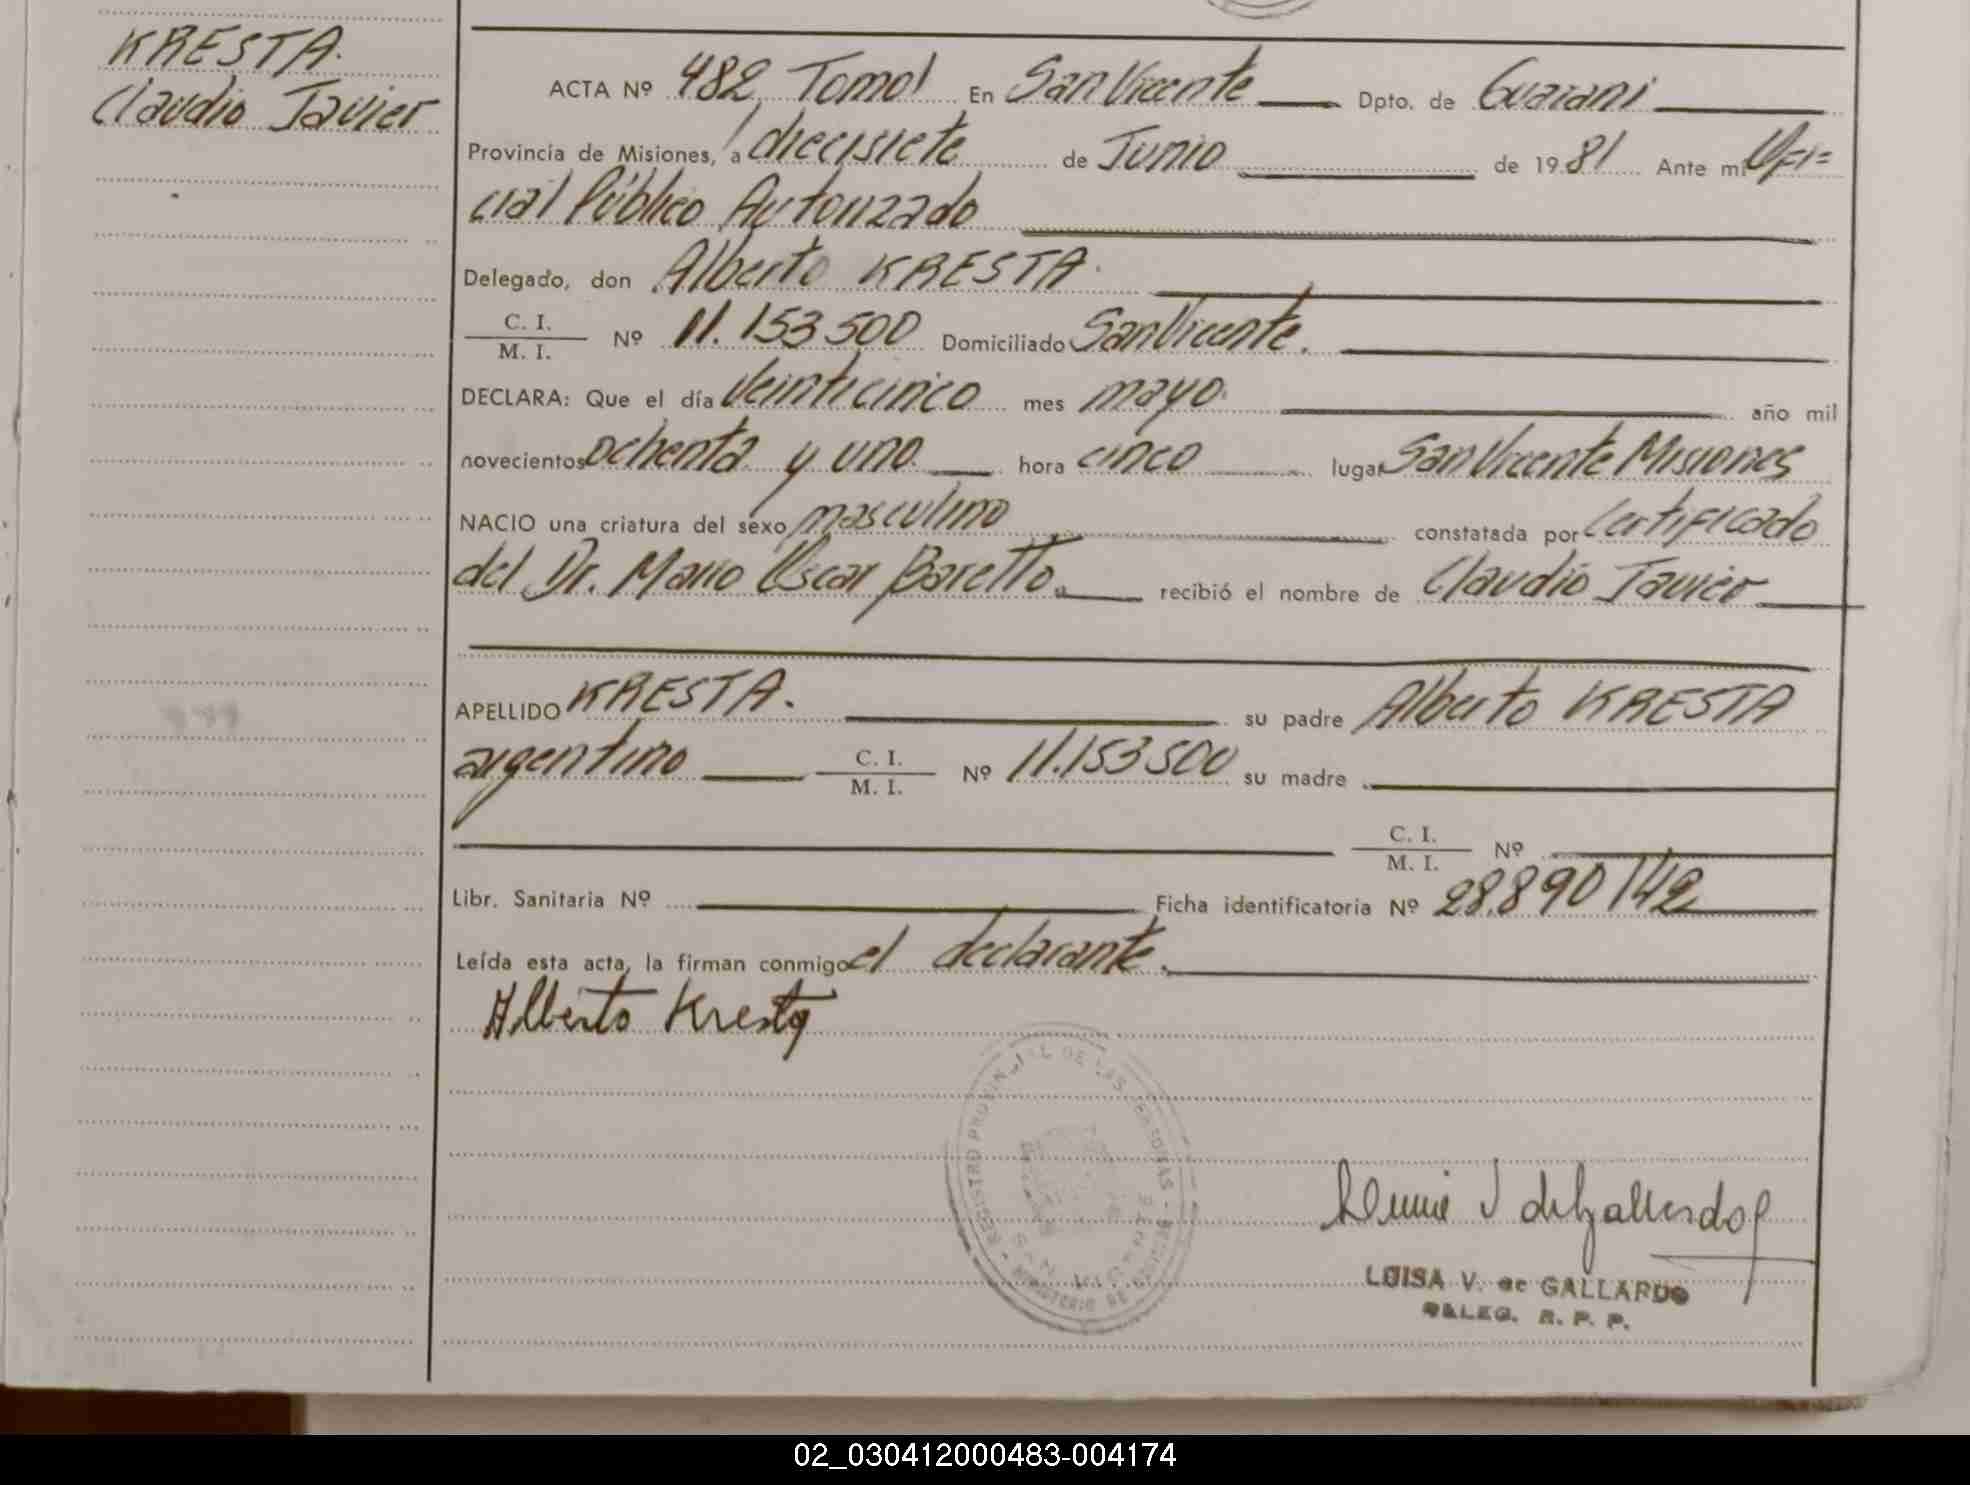 KRESTA.
Claudio Javier
ACTA Nº 482, Tomo I En San Vicente Dpto. de Guarani
Provincia de Misiones, a diecisiete de Junio de 1981 Ante mi Ofi=
cial Público Autorizado
Delegado, don Alberto KRESTA.
C. I.
M. I. Nº 11.153.500 Domiciliado San Vicente.
DECLARA: Que el día veinticinco mes mayo. año mil
novecientos ochenta y uno hora cinco lugar San Vicente Misiones
NACIO una criatura del sexo masculino constatada por certificado
del Dr. Mario Oscar Baretto. recibió el nombre de Claudio Javier
APELLIDO KRESTA. su padre Alberto KRESTA
argentino C. I.
M. I. Nº 11.153.500 su madre
C. I.
M. I. Nº
Libr. Sanitaria Nº Ficha identificatoria Nº 28.890142
Leída esta acta, la firman conmigo el declarante.
Alberto Kresta
REGISTRO PROVINCIAL DE LAS PERSONAS
MINISTERIO DE
LUISA V. de GALLARDO
DELEG. R. P. P.
02_030412000483-004174